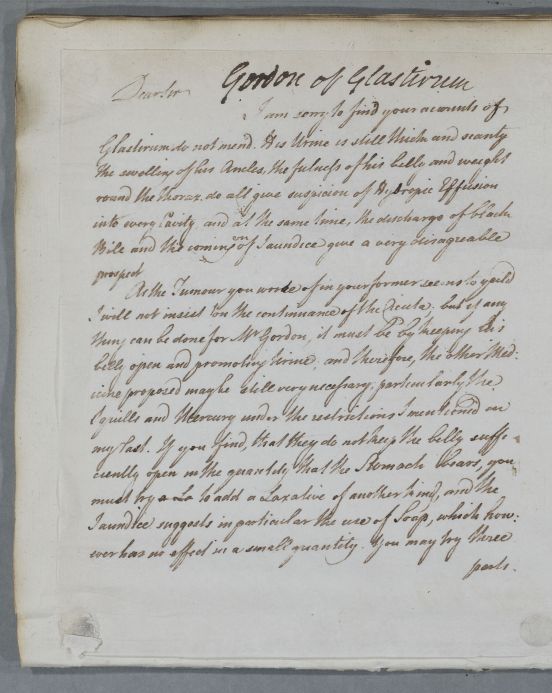 Gordon of Glastirum
Dear Sir
I am sorry to find your accounts of
Glastirum do not mend. His Urine is still thick and scanty
the swelling of his Ancles, the fulness of his belly and weight
round the thorax do all give suspicion of Hydropic Effusion
into every Cavity and at the same time, the discharge of black
Bile and the coming on of Jaundice give a very disagreable
prospect
As the Tumour you wrote of in your former seems to yeild
I will not insist on the continuance of the Cicuta, but if any
thing can be done for Mr Gordon, it must be by keeping his
belly open and promoting Urine, and therefore, the other Med:
icine proposed may be still very necessary, particularly the
Squills and Mercury under the restrictions I mentioned in
my last. If you find, that they do not keep the belly suffi=
ciently open in the quantity, that the Stomach bears, you
must try to add a Laxative of another kind, and the
Jaundice suggests in particular the use of Soap, which how:
ever has no effect in a small quantity. You may try three
parts.